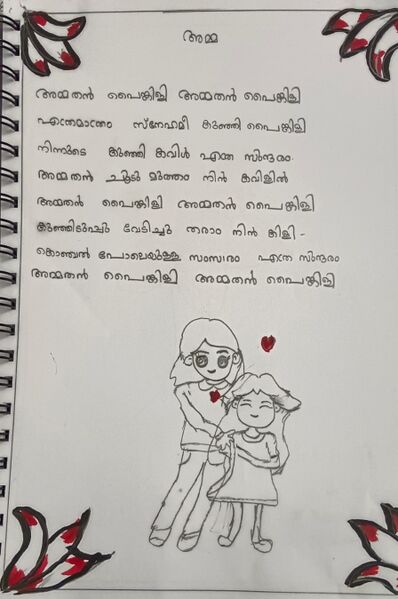 അമ്മ
അമ്മതൻ പൈങ്കിളി അമ്മതൻ പൈങ്കിളി
എന്തേമാത്രം സ്നേഹമീ കുഞ്ഞി പൈങ്കിളി
നിന്നുടെ കുഞ്ഞി കവിൾ എന്ത സുന്ദരം
അമ്മതൻ ചൂടു മുത്തം നിൻ കവിളിൽ
അമ്മതൻ പൈങ്കിളി അമ്മതൻ പൈങ്കിളി
കുഞ്ഞിടുപ്പു വേടിച്ചു തരാം നിൻ കിളി -
കൊഞ്ചൽ പോലെയുള്ള സംസാരം എന്ത സുന്ദരം
അമ്മതൻ പൈങ്കിളി അമ്മതൻ പൈങ്കിളി